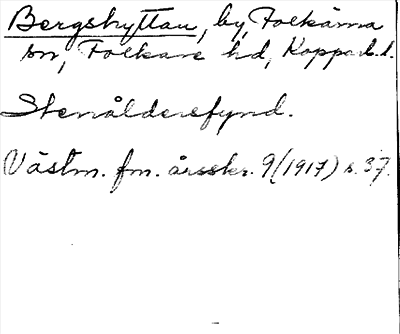 Bergshyttan, by, Folkärna
sn, Folkare hd, Koppa.b.l.
Stenåldersfynd.
Västm. fm. årsskr. 9(1917) s. 37.